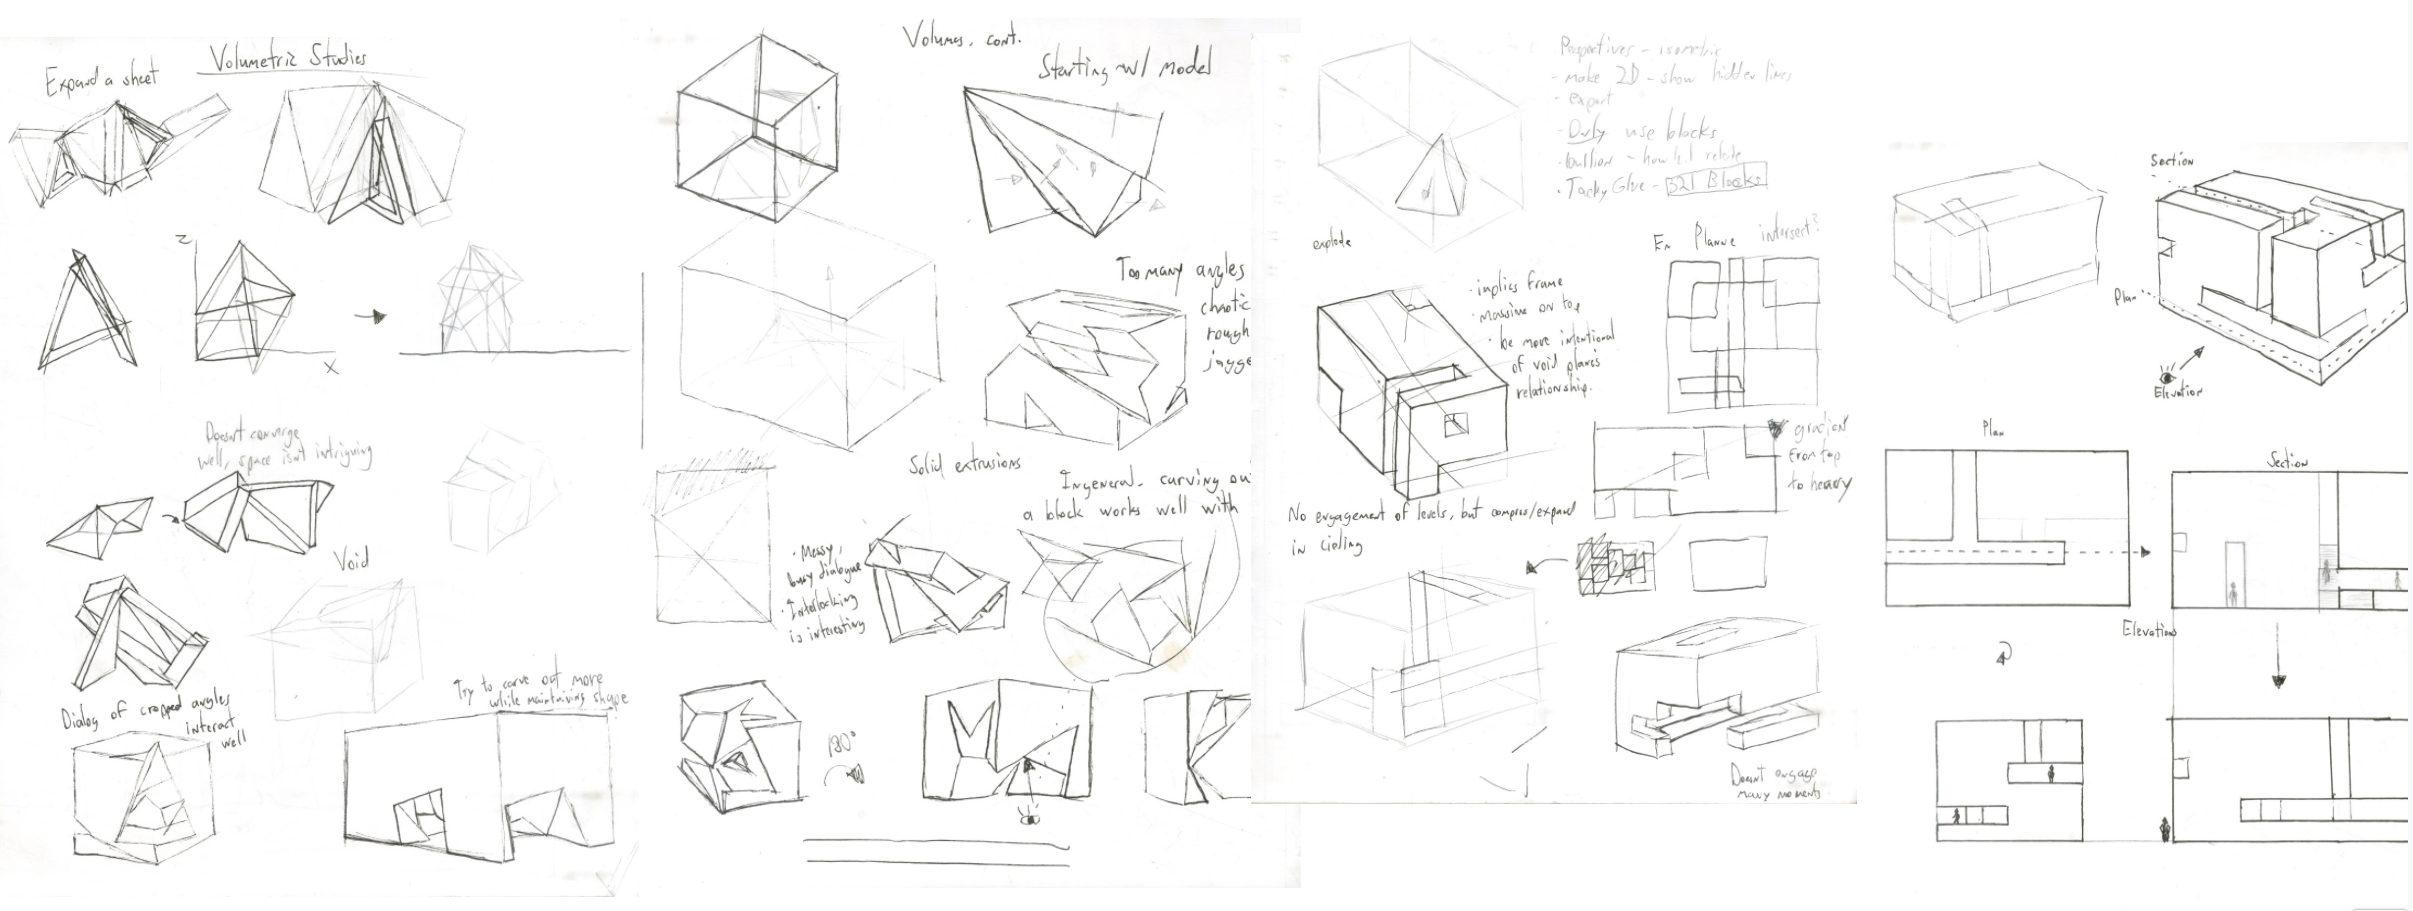 Volumetric Studies
Expand a sheet
Z
X
Doesnt converge
well, space isnt intriguing
Void
Try to carve out more
while maintaining shape
Dialog of cropped angles
interact
well
Volumes, cont.
Starting w/ model
Too many angles
chaotic
rough
jagge
Solid extrusions
In general, carving ou
a block works well with
· Messy,
busy dialogue
· Interlocking
is interesting
180°
Perspectives - isometric
- make 2D - show hidden lines
- export
- use blocks
- how relate
· Tacky Glue - 321 Blocks
explode
· implies frame
· massive on top
· be more intentional
of void planes
relationship.
En Planne intersect?
from top
to heavy
No engagement of levels, but compress/expand
in cieling
Doesnt engage
many moments
Section
Plan
Elevation
Plan
Section
Elevations